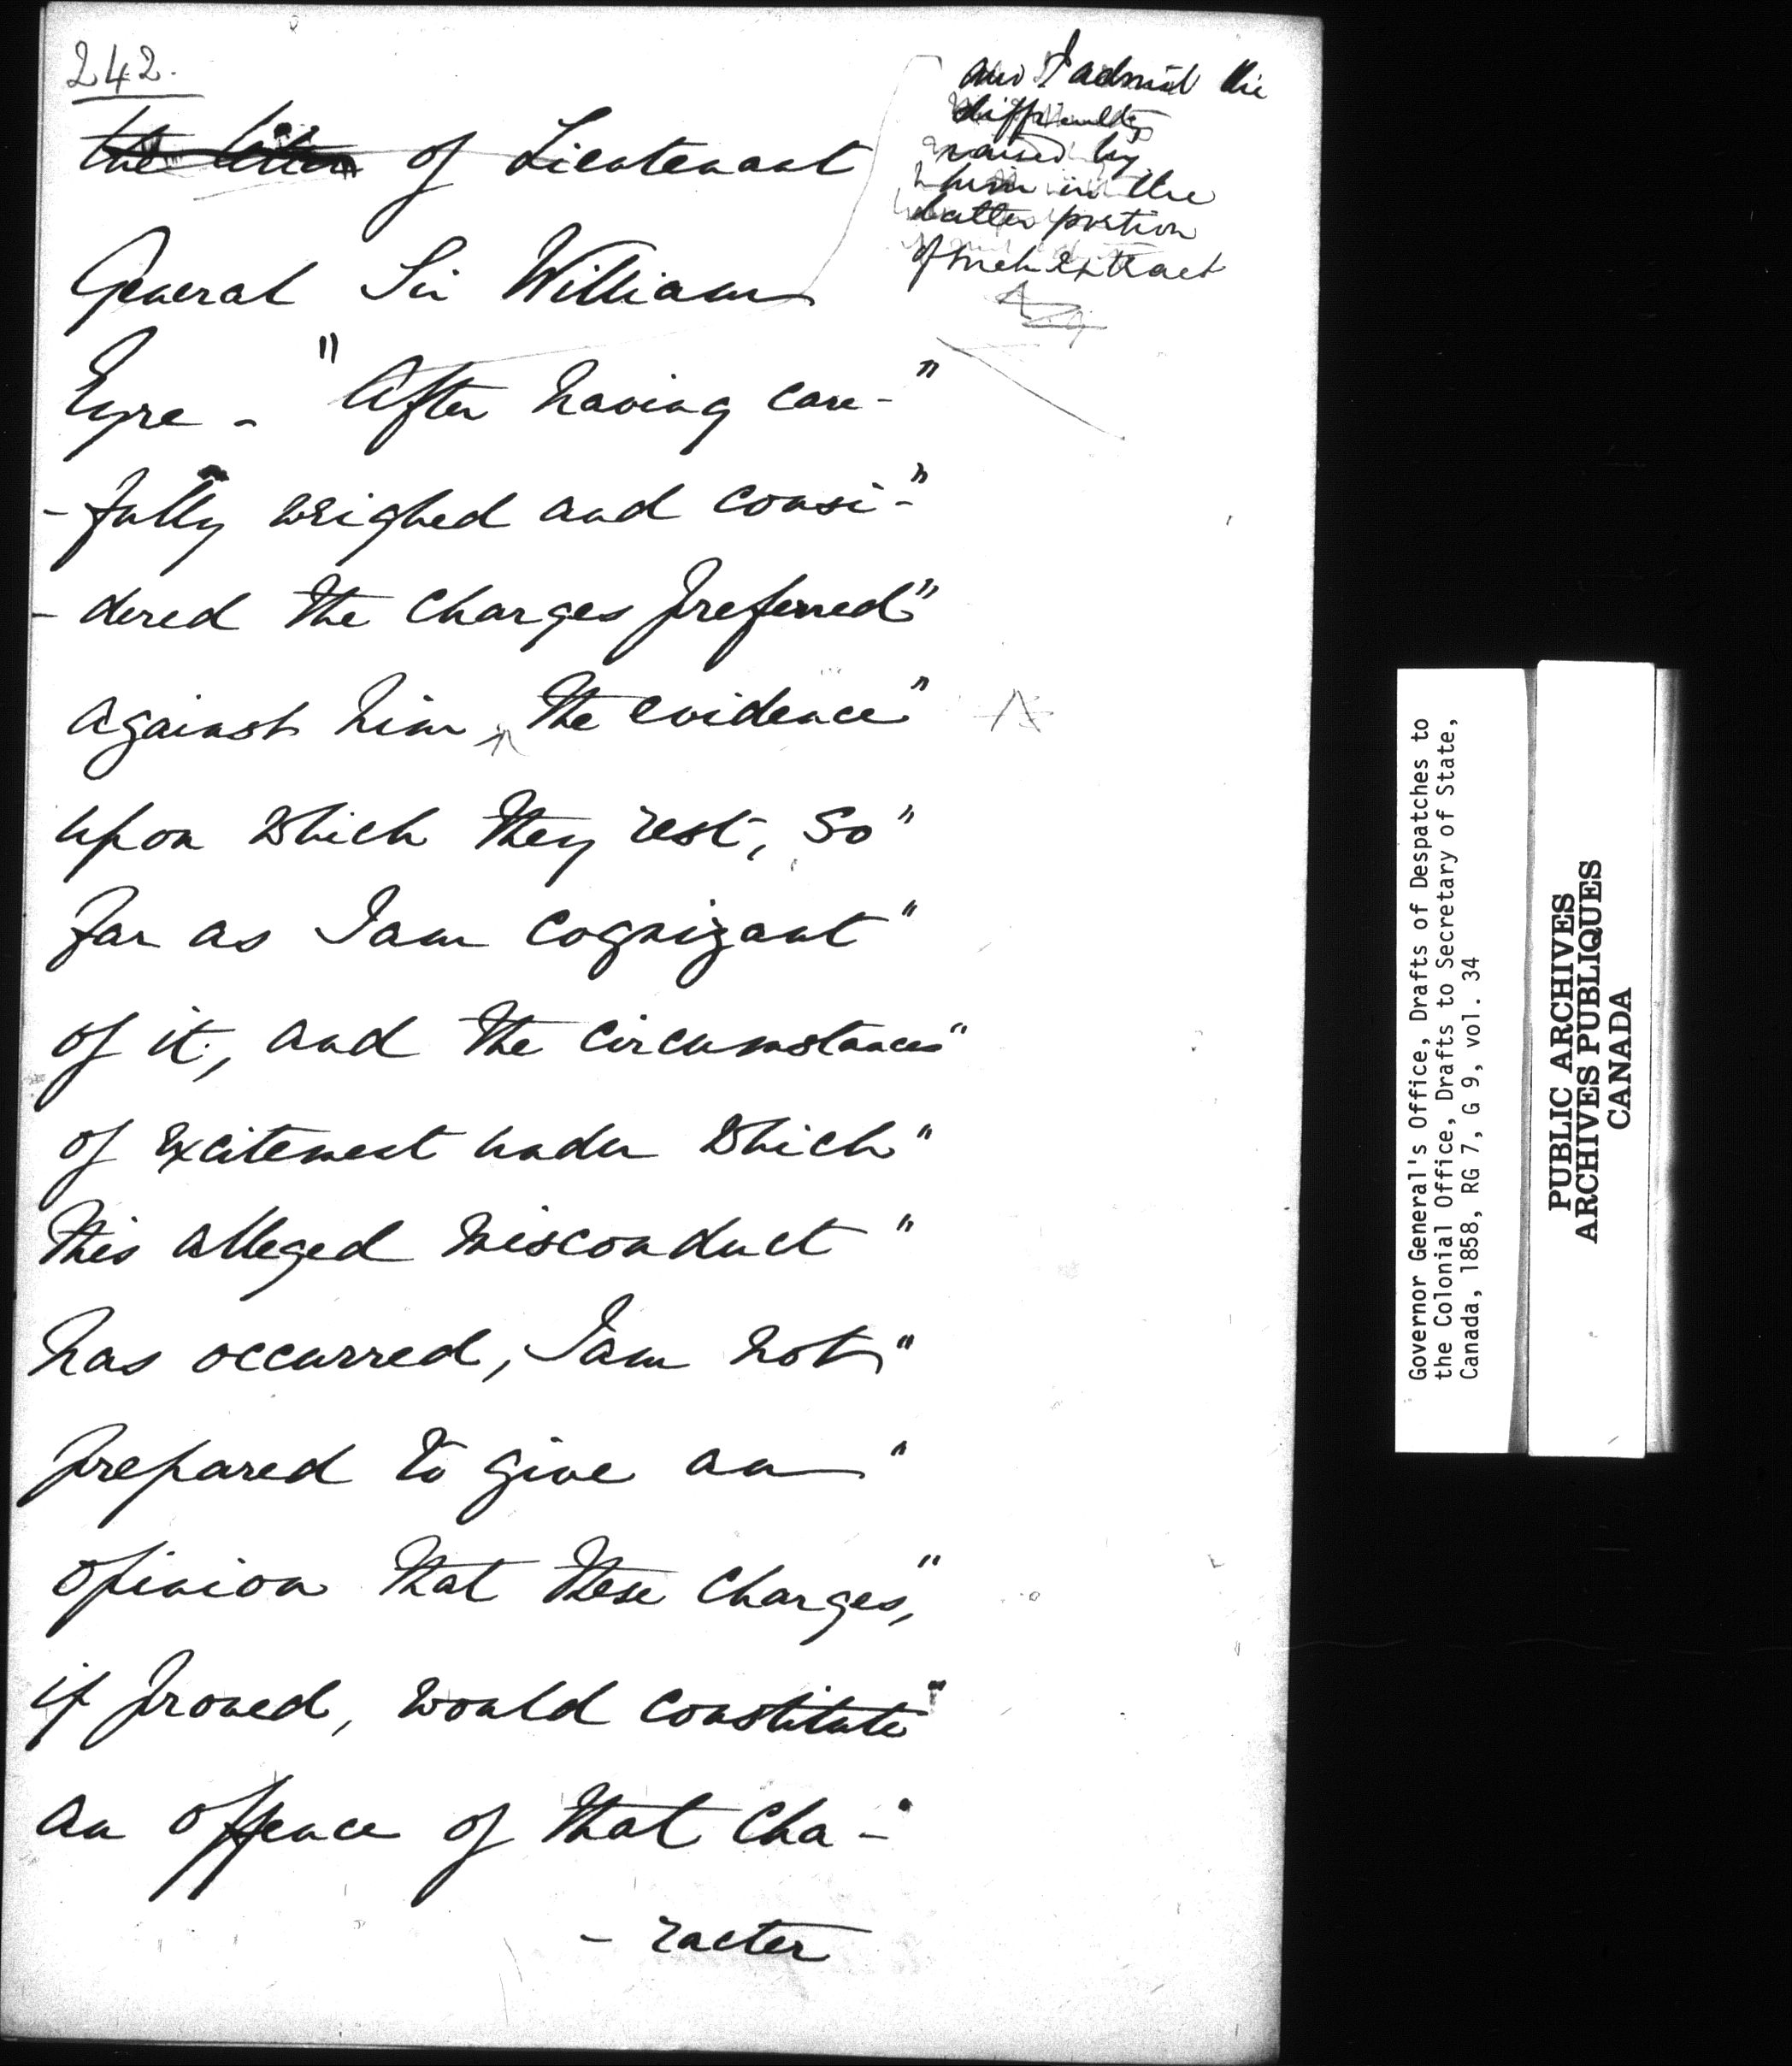 242.
the letter of Lieutenant
General Sir William
Eyre - "After having care- "
- fully weighed and consi- "
- dered the charges preferred "
against him, the evidence "
upon which they rest, so "
far as I am cognizant "
of it, and the circumstances "
of excitement under which "
this alleged misconduct "
has occurred, I am not "
prepared to give an "
opinion that these charges, "
if proved, would constitute "
an offence of that cha - "
- racter
and I admit the
difficulty
raised by
him in the
latter portion
of such extract
Governor General's Office, Drafts of Despatches to
the Colonial Office, Drafts to Secretary of State,
Canada, 1858, RG 7, G 9, vol. 34
PUBLIC ARCHIVES
ARCHIVES PUBLIQUES
CANADA